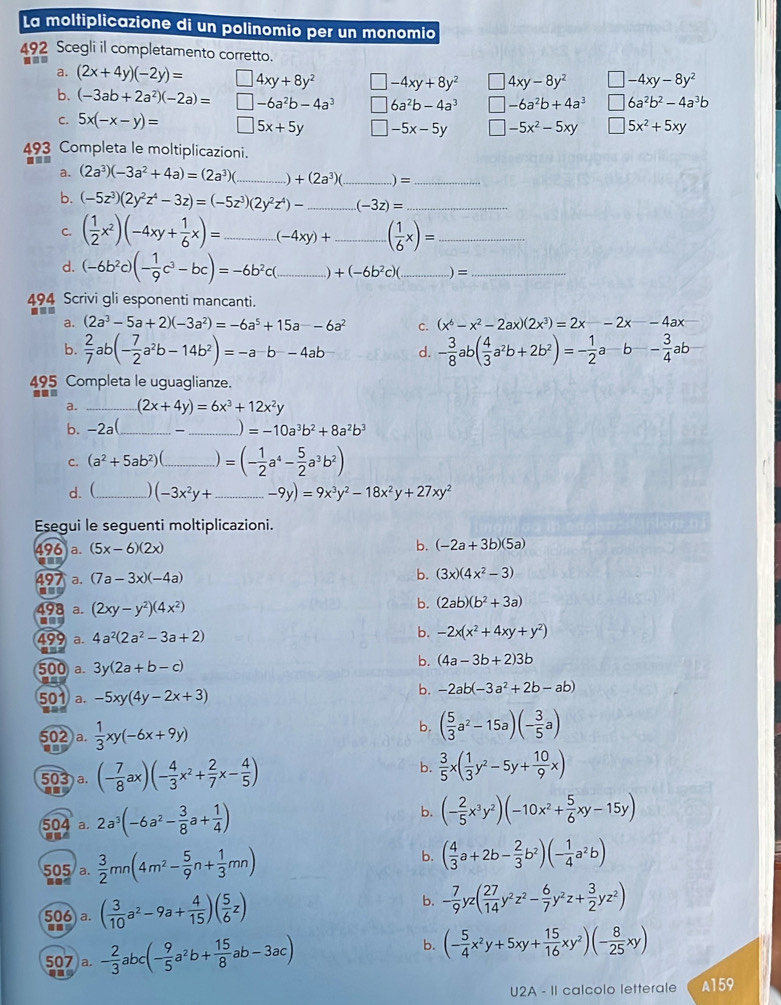 La moltiplicazione di un polinomio per un monomio
492 Scegli il completamento corretto.
a. (2x + 4y)(−2y) = □ 4xy + 8y² □ −4xy + 8y² □ 4xy − 8y² □ −4xy − 8y²
b. (−3ab + 2a²)(−2a) = □ −6a²b − 4a³ □ 6a²b − 4a³ □ −6a²b + 4a³ □ 6a²b² − 4a³b
c. 5x(−x − y) = □ 5x + 5y □ −5x − 5y □ −5x² − 5xy □ 5x² + 5xy
493 Completa le moltiplicazioni.
a. (2a³)(−3a² + 4a) = (2a³)(............) + (2a³)(............) = ............
b. (−5z³)(2y²z⁴ − 3z) = (−5z³)(2y²z⁴) − ............(−3z) = ............
c. (1/2 x²)(−4xy + 1/6 x) = ............(−4xy) + ............(1/6 x) = ............
d. (−6b²c)(−1/9 c³ − bc) = −6b²c(............) + (−6b²c)(............) = ............
494 Scrivi gli esponenti mancanti.
a. (2a³ − 5a + 2)(−3a²) = −6a⁵ + 15a − 6a² c. (x⁶ − x² − 2ax)(2x³) = 2x − 2x − 4ax
b. 2/7 ab(−7/2 a²b − 14b²) = −a b − 4ab d. −3/8 ab(4/3 a²b + 2b²) = −1/2 a b − 3/4 ab
495 Completa le uguaglianze.
a. ............(2x + 4y) = 6x³ + 12x²y
b. −2a(............ − ............) = −10a³b² + 8a²b³
c. (a² + 5ab²)(............) = (−1/2 a⁴ − 5/2 a³b²)
d. (............)(−3x²y + ............ −9y) = 9x³y² − 18x²y + 27xy²
Esegui le seguenti moltiplicazioni.
496 a. (5x − 6)(2x) b. (−2a + 3b)(5a)
497 a. (7a − 3x)(−4a) b. (3x)(4x² − 3)
498 a. (2xy − y²)(4x²) b. (2ab)(b² + 3a)
499 a. 4a²(2a² − 3a + 2) b. −2x(x² + 4xy + y²)
500 a. 3y(2a + b − c) b. (4a − 3b + 2)3b
501 a. −5xy(4y − 2x + 3) b. −2ab(−3a² + 2b − ab)
502 a. 1/3 xy(−6x + 9y) b. (5/3 a² − 15a)(−3/5 a)
503 a. (−7/8 ax)(−4/3 x² + 2/7 x − 4/5) b. 3/5 x(1/3 y² − 5y + 10/9 x)
504 a. 2a³(−6a² − 3/8 a + 1/4) b. (−2/5 x³y²)(−10x² + 5/6 xy − 15y)
505 a. 3/2 mn(4m² − 5/9 n + 1/3 mn) b. (4/3 a + 2b − 2/3 b²)(−1/4 a²b)
506 a. (3/10 a² − 9a + 4/15)(5/6 z) b. −7/9 yz(27/14 y²z² − 6/7 y²z + 3/2 yz²)
507 a. −2/3 abc(−9/5 a²b + 15/8 ab − 3ac) b. (−5/4 x²y + 5xy + 15/16 xy²)(−8/25 xy)
U2A - Il calcolo letterale A159